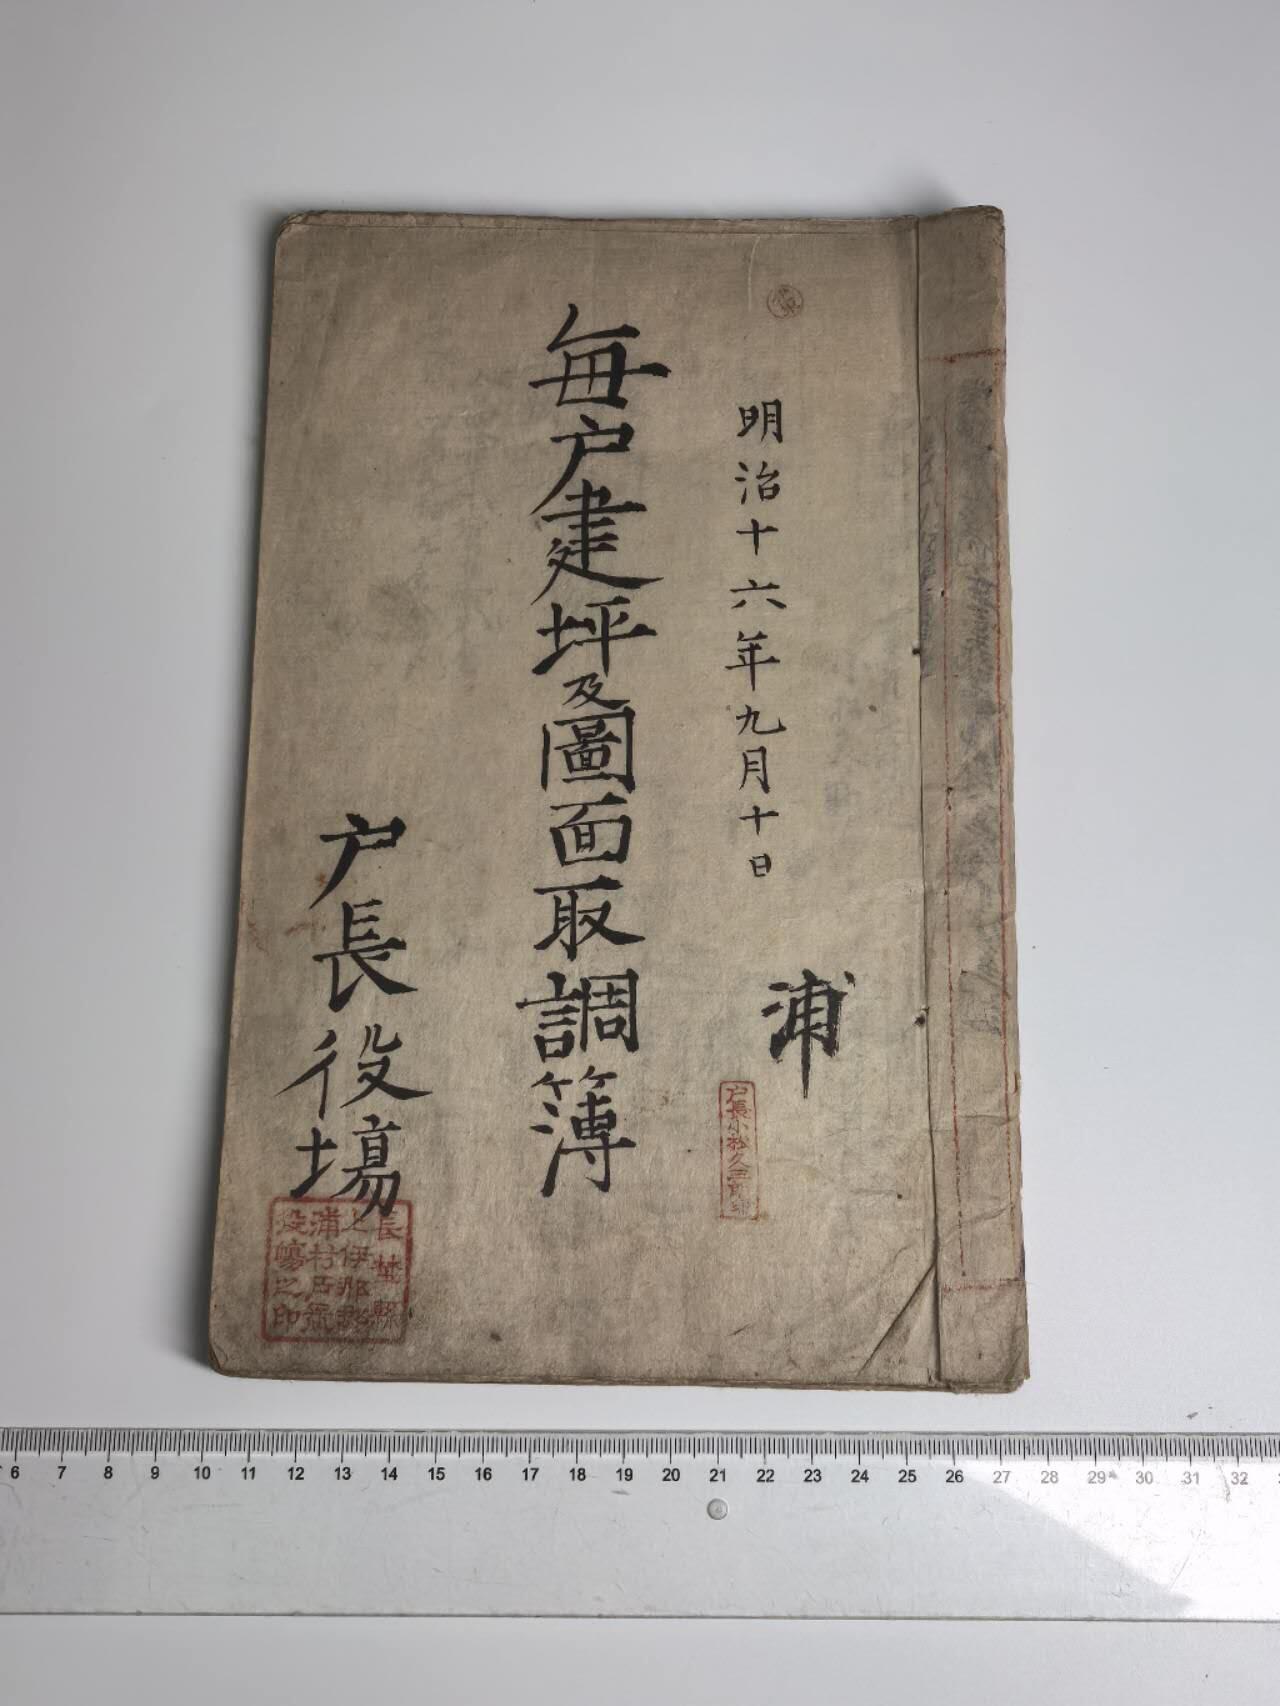 明治十六年九月十日
浦
戸長小松久三郎印
毎戸建坪及圖面取調簿
戸長役場
長野縣
上伊那郡
浦村戸長
役場之印
6 7 8 9 10 11 12 13 14 15 16 17 18 19 20 21 22 23 24 25 26 27 28 29 30 31 32